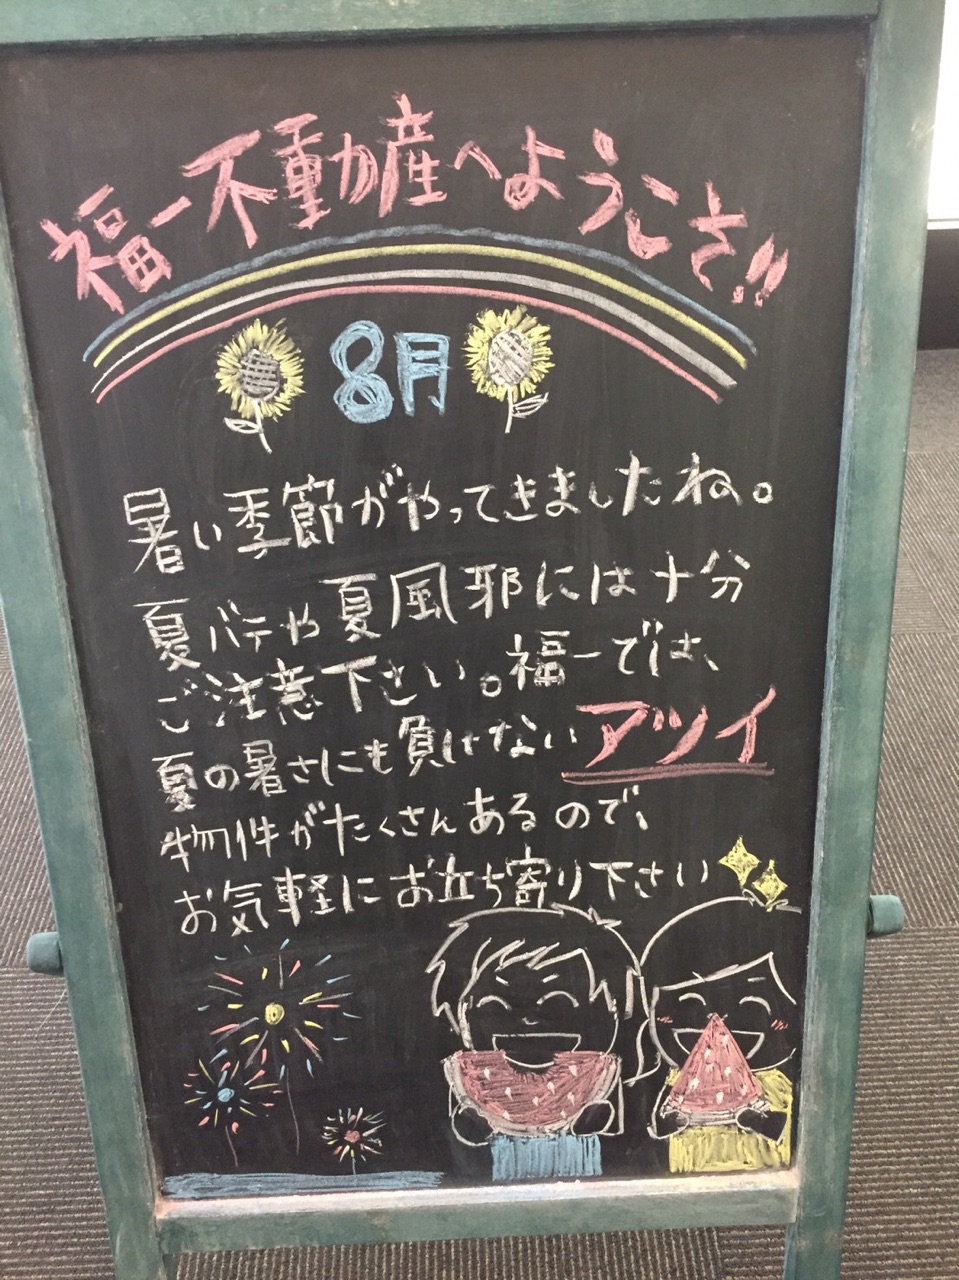 福一不動産へようこそ!!
8月
暑い季節がやってきましたね。
夏バテや夏風邪には十分
ご注意下さい。福一では、
夏の暑さにも負けないアツイ
物件がたくさんあるので、
お気軽にお立ち寄り下さい